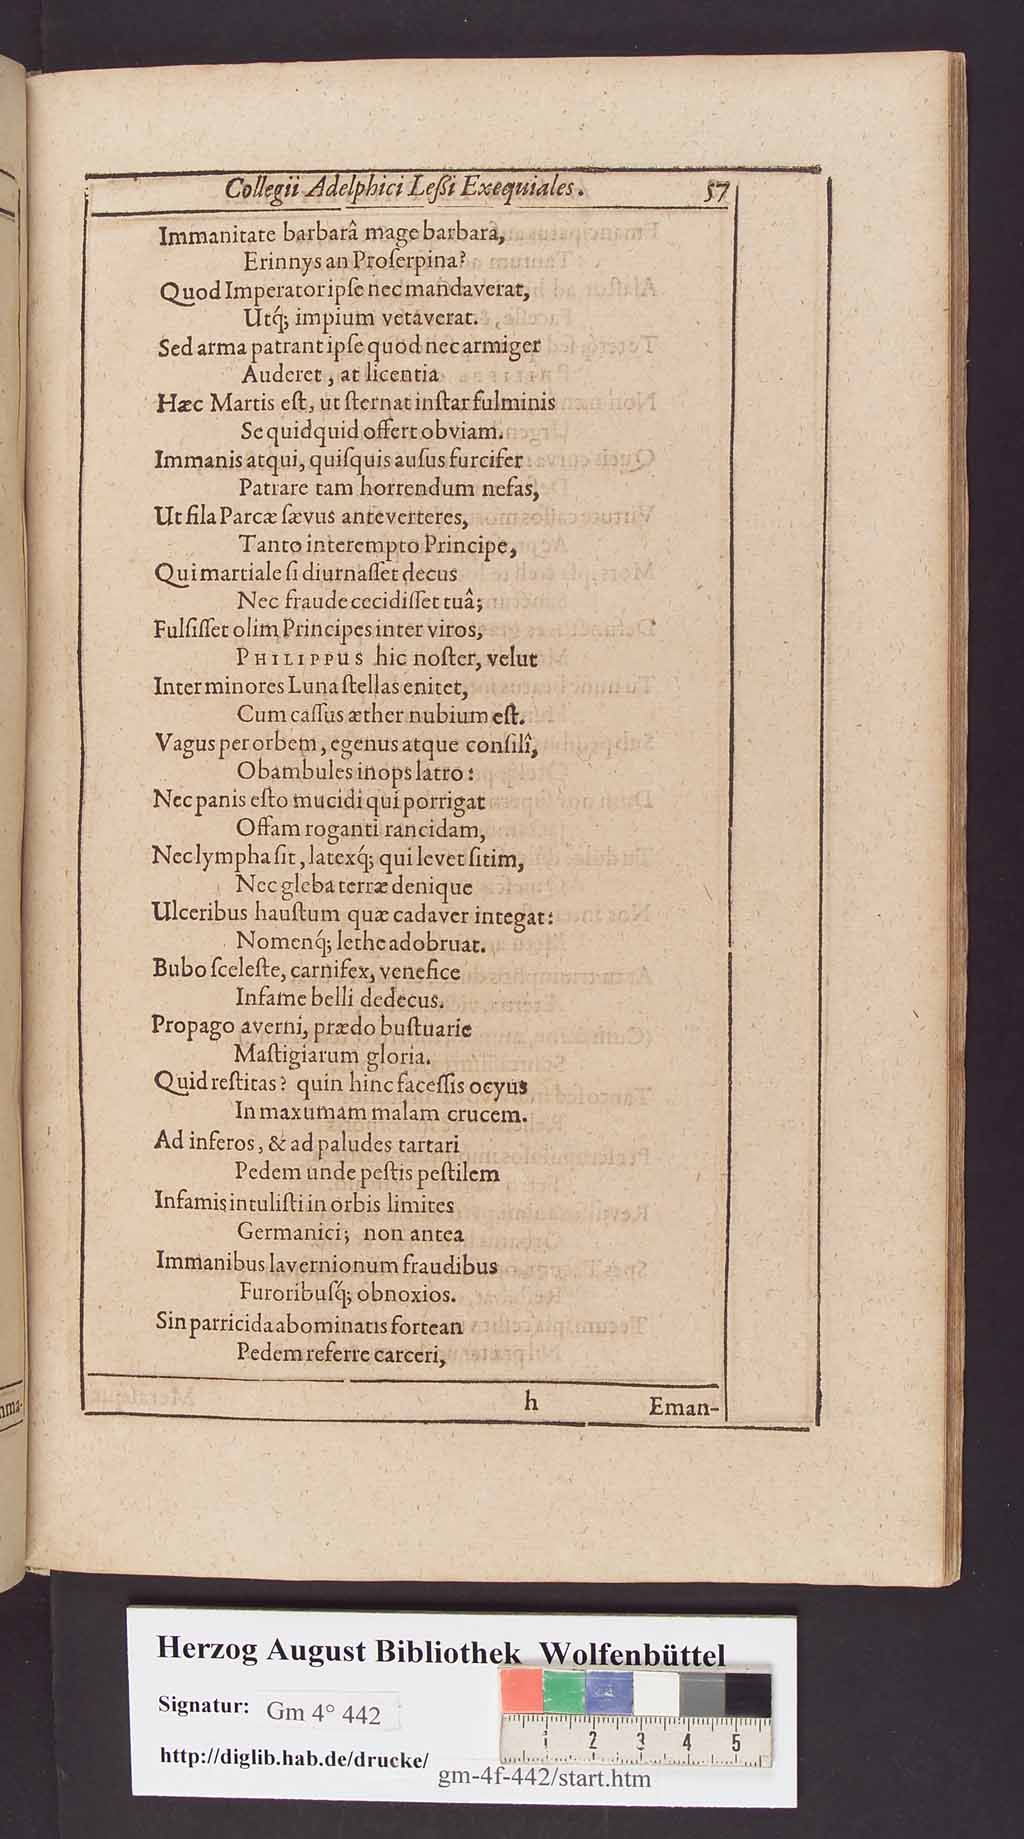 Collegii Adelphici Leßi Exequiales. 57
Immanitate barbarâ mage barbara,
Erinnys an Proſerpina?
Quod Imperator ipſe nec mandaverat,
Utq́; impium vetaverat.
Sed arma patrant ipſe quod nec armiger
Auderet, at licentia
Hæc Martis eſt, ut ſternat inſtar fulminis
Se quidquid offert obviam.
Immanis atqui, quiſquis auſus furcifer
Patrare tam horrendum nefas,
Ut fila Parcæ ſævus anteverteres,
Tanto interempto Principe,
Qui martiale ſi diurnaſſet decus
Nec fraude cecidiſſet tuâ;
Fulſiſſet olim Principes inter viros,
PHILIPPUS hic noſter, velut
Inter minores Luna ſtellas enitet,
Cum caſſus æther nubium eſt.
Vagus per orbem, egenus atque conſilî,
Obambules inops latro:
Nec panis eſto mucidi qui porrigat
Offam roganti rancidam,
Nec lympha ſit, latexq́; qui levet ſitim,
Nec gleba terræ denique
Ulceribus hauſtum quæ cadaver integat:
Nomenq́; lethe adobruat.
Bubo ſceleſte, carnifex, venefice
Infame belli dedecus.
Propago averni, prædo buſtuarie
Maſtigiarum gloria.
Quid reſtitas? quin hinc faceſſis ocyus
In maxumam malam crucem.
Ad inferos, & ad paludes tartari
Pedem unde peſtis peſtilem
Infamis intuliſti in orbis limites
Germanici; non antea
Immanibus lavernionum fraudibus
Furoribuſq́; obnoxios.
Sin parricida abominatis fortean
Pedem referre carceri,
h Eman-
Herzog August Bibliothek Wolfenbüttel
Signatur: Gm 4° 442
http://diglib.hab.de/drucke/
gm-4f-442/start.htm
1 2 3 4 5